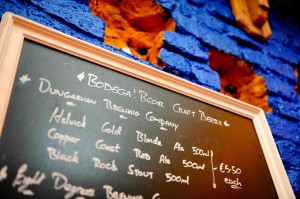 BODEGA'S BEOIR CRAFT BEERS
DUNGARVAN BREWING COMPANY
HELVICK GOLD BLONDE ALE 500ml
COPPER COAST RED ALE 500ml
BLACK ROCK STOUT 500ml
€5.50
each
EIGHT DEGREES BREWING